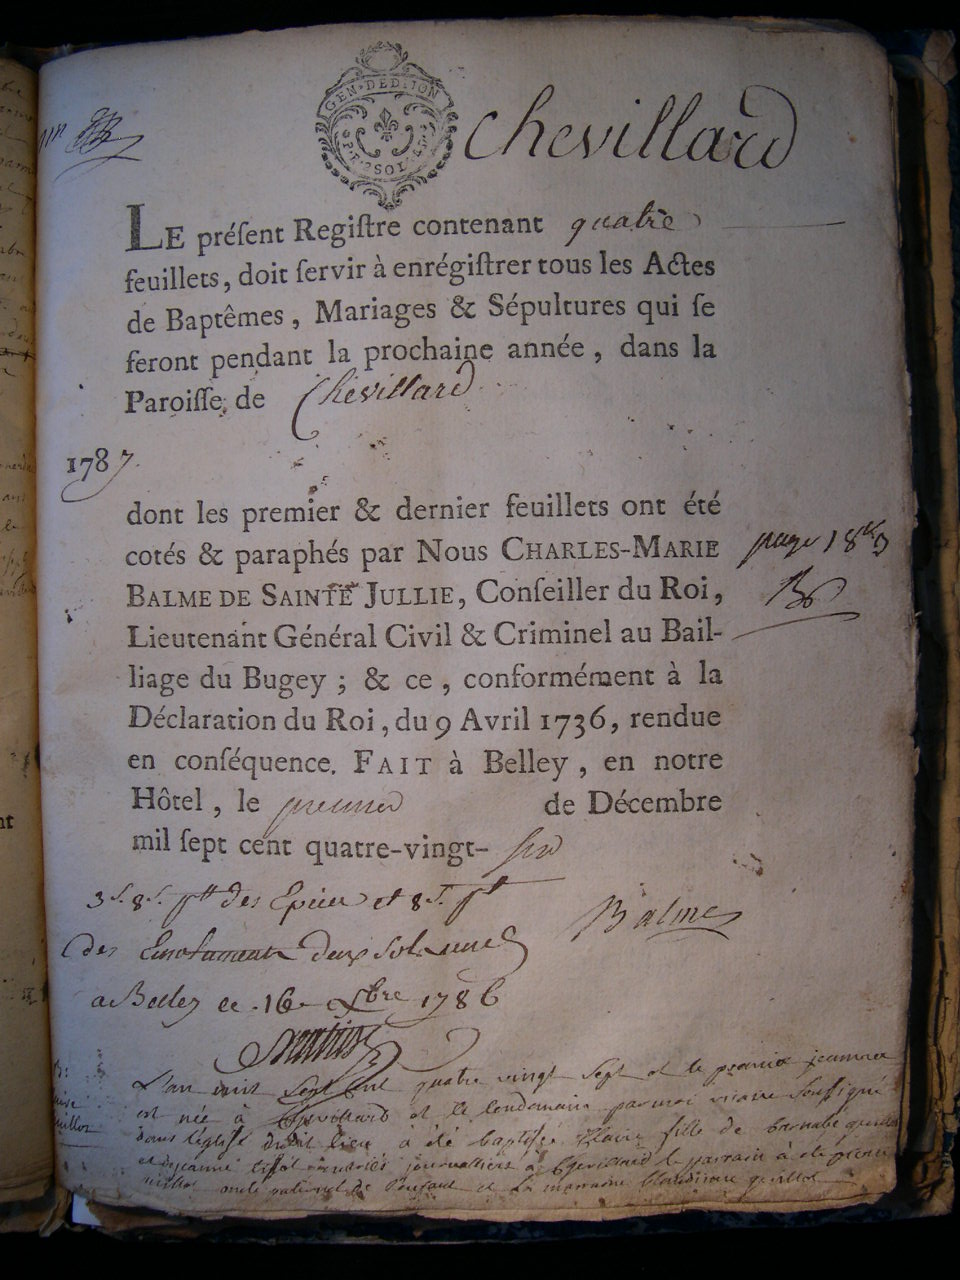 GEN · DED · ION
P · R · 2 SOLS
Chevillard
LE préſent Regiſtre contenant quatre
feuillets, doit ſervir à enrégiſtrer tous les Actes
de Baptêmes, Mariages & Sépultures qui ſe
feront pendant la prochaine année, dans la
Paroiſſe, de Chevillard
1787.
dont les premier & dernier feuillets ont été
cotés & paraphés par Nous CHARLES-MARIE
BALME DE SAINTE JULLIE, Conſeiller du Roi,
Lieutenant Général Civil & Criminel au Bail-
liage du Bugey ; & ce, conformément à la
Déclaration du Roi, du 9 Avril 1736, rendue
en conſéquence. FAIT à Belley, en notre
Hôtel, le premier de Décembre
mil ſept cent quatre-vingt- six
page 1ere
B
des Epices et
Balme
des deux sols
a Belley ce 16 Xbre 1786
L'an mil sept cent quatre vingt sept et le premier janvier
est née à Chevillard et le lendemain par moi vicaire soussigné
dans l'église dudit lieu à été baptisée Claire fille de barnabe
et de jeanne journalliers à Chevillard le parrain à été pierre
oncle paternel de l'enfant et la marraine